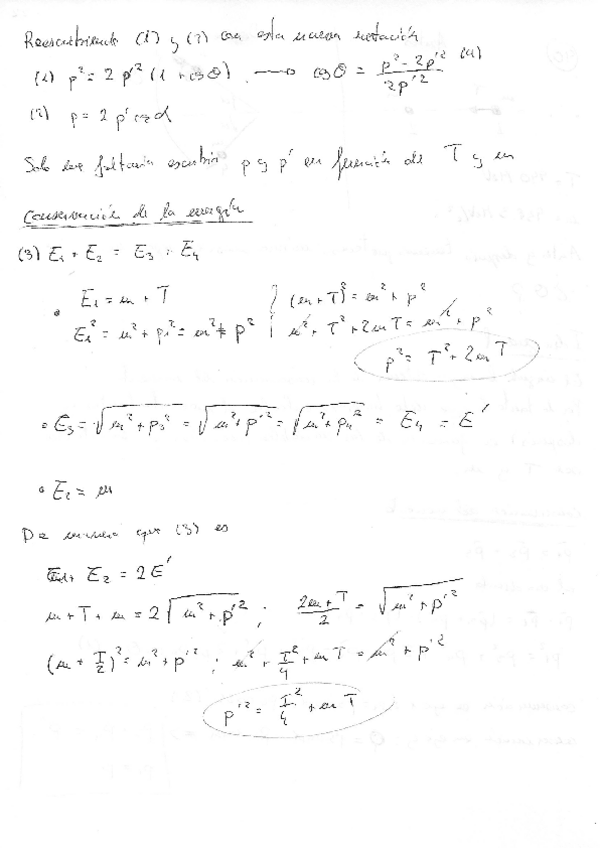 Reescribiendo (1) y (2) con esta nueva notación
(1) p² = 2 p'² (1 + cosθ) . → cosθ = (p² - 2p'²)/(2p'²) (4)
(2) p = 2 p' cosα
Solo nos faltaria escribir p y p' en función de T y m
Conservación de la energía
(3) E₁ + E₂ = E₃ + E₄
• E₁ = m + T } (m+T)² = m² + p²
E₁² = m² + p₁² = m² + p² | m² + T² + 2mT = m² + p²
p² = T² + 2mT
• E₃ = √(m² + p₃²) = √(m² + p'²) = √(m² + p₄²) = E₄ = E'
• E₂ = m
De manera que (3) es
E₁ + E₂ = 2E'
m + T + m = 2√(m² + p'²) ; (2m + T)/2 = √(m² + p'²)
(m + T/2)² = m² + p'² ; m² + T²/4 + mT = m² + p'²
p'² = T²/4 + mT